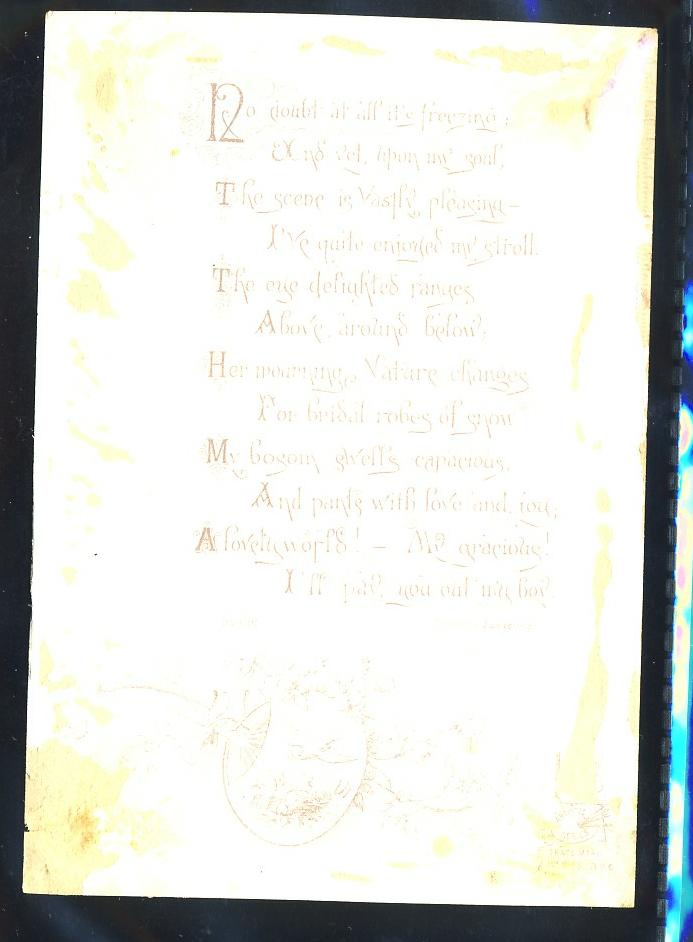 No doubt at all it's freezing;
And yet, upon my soul,
The scene is vastly pleasing—
I've quite enjoyed my stroll.
The eye delighted ranges
Above, around below;
Her mourning, Nature changes
For bridal robes of snow
My bosom swells capacious,
And pants with love and joy;
A lovely world! — My gracious!
I'll pay you out my boy.
TRADE MARK